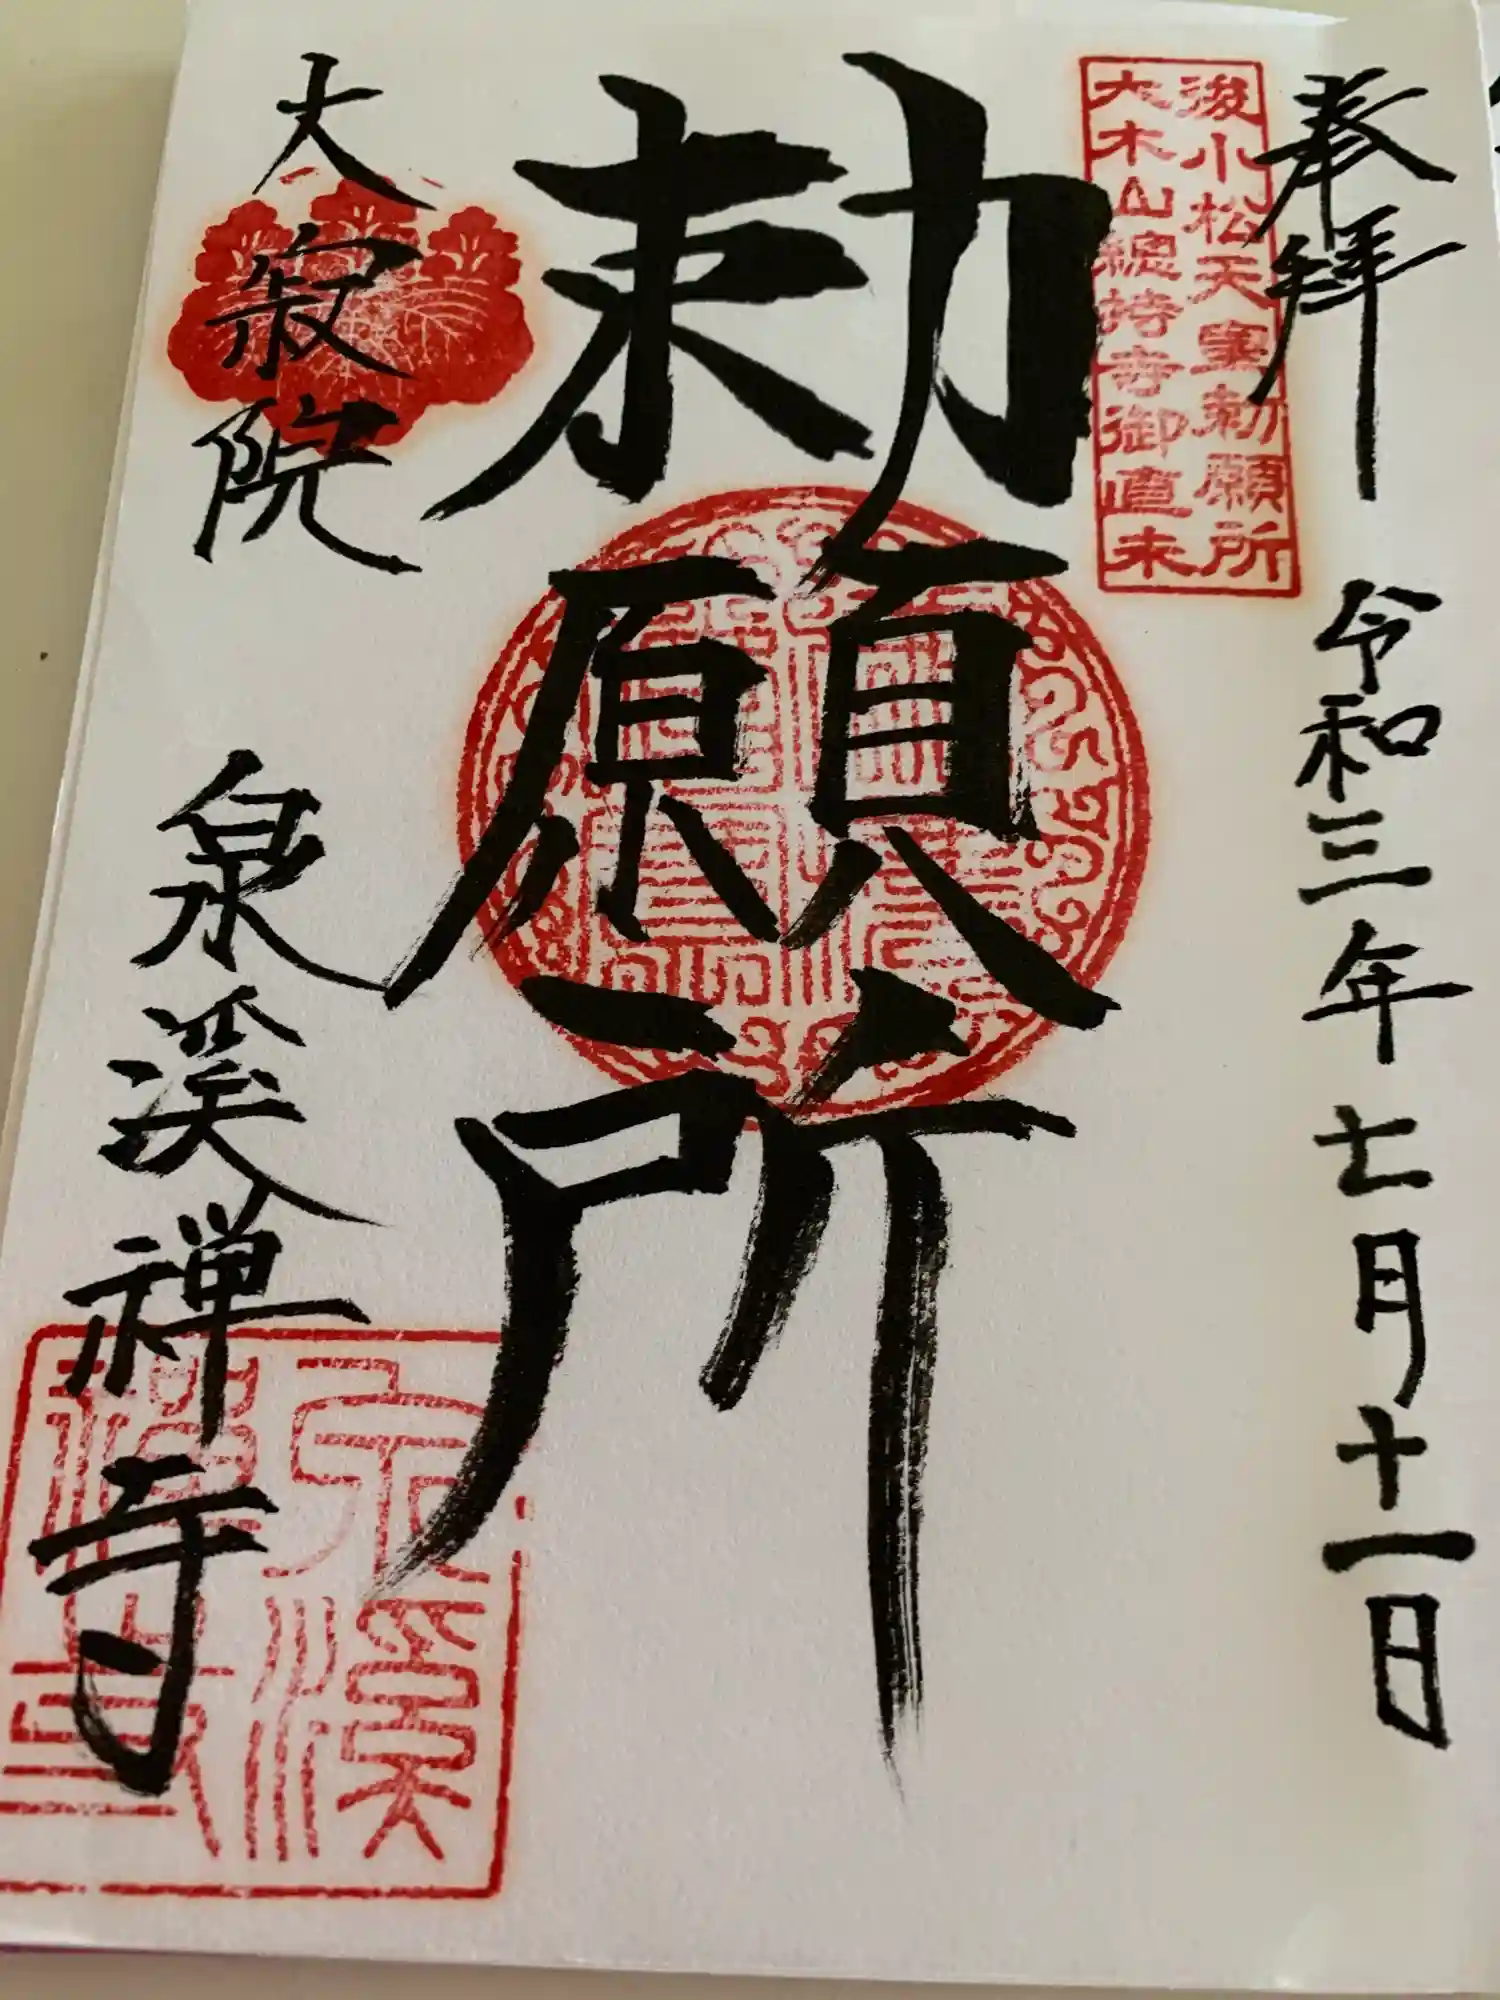 奉拝 令和三年七月十一日
後小松天皇勅願所
大木山總持寺御直末
勅願所
大寂院 泉溪禅寺